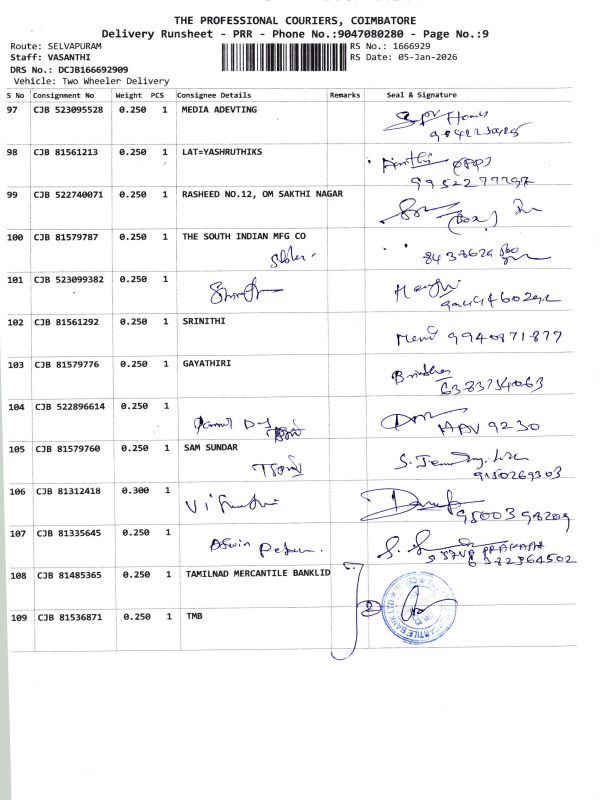 THE PROFESSIONAL COURIERS, COIMBATORE
Delivery Runsheet - PRR - Phone No.:9047080280 - Page No.:9
Route: SELVAPURAM
Staff: VASANTHI
DRS No.: DCJB166692909
Vehicle: Two Wheeler Delivery
RS No.: 1666929
RS Date: 05-Jan-2026
S No Consignment No Weight PCS Consignee Details Remarks Seal & Signature
97 CJB 523095528 0.250 1 MEDIA ADEVTING
98 CJB 81561213 0.250 1 LAT=YASHRUTHIKS
99 CJB 522740071 0.250 1 RASHEED NO.12, OM SAKTHI NAGAR
100 CJB 81579787 0.250 1 THE SOUTH INDIAN MFG CO
101 CJB 523099382 0.250 1
102 CJB 81561292 0.250 1 SRINITHI
9940871877
103 CJB 81579776 0.250 1 GAYATHIRI
6383734063
104 CJB 522896614 0.250 1
9230
105 CJB 81579760 0.250 1 SAM SUNDAR
9150269303
106 CJB 81312418 0.300 1
107 CJB 81335645 0.250 1
6382364502
108 CJB 81485365 1 TAMILNAD MERCANTILE BANKLID
109 CJB 81536871 0.250 1 TMB
2